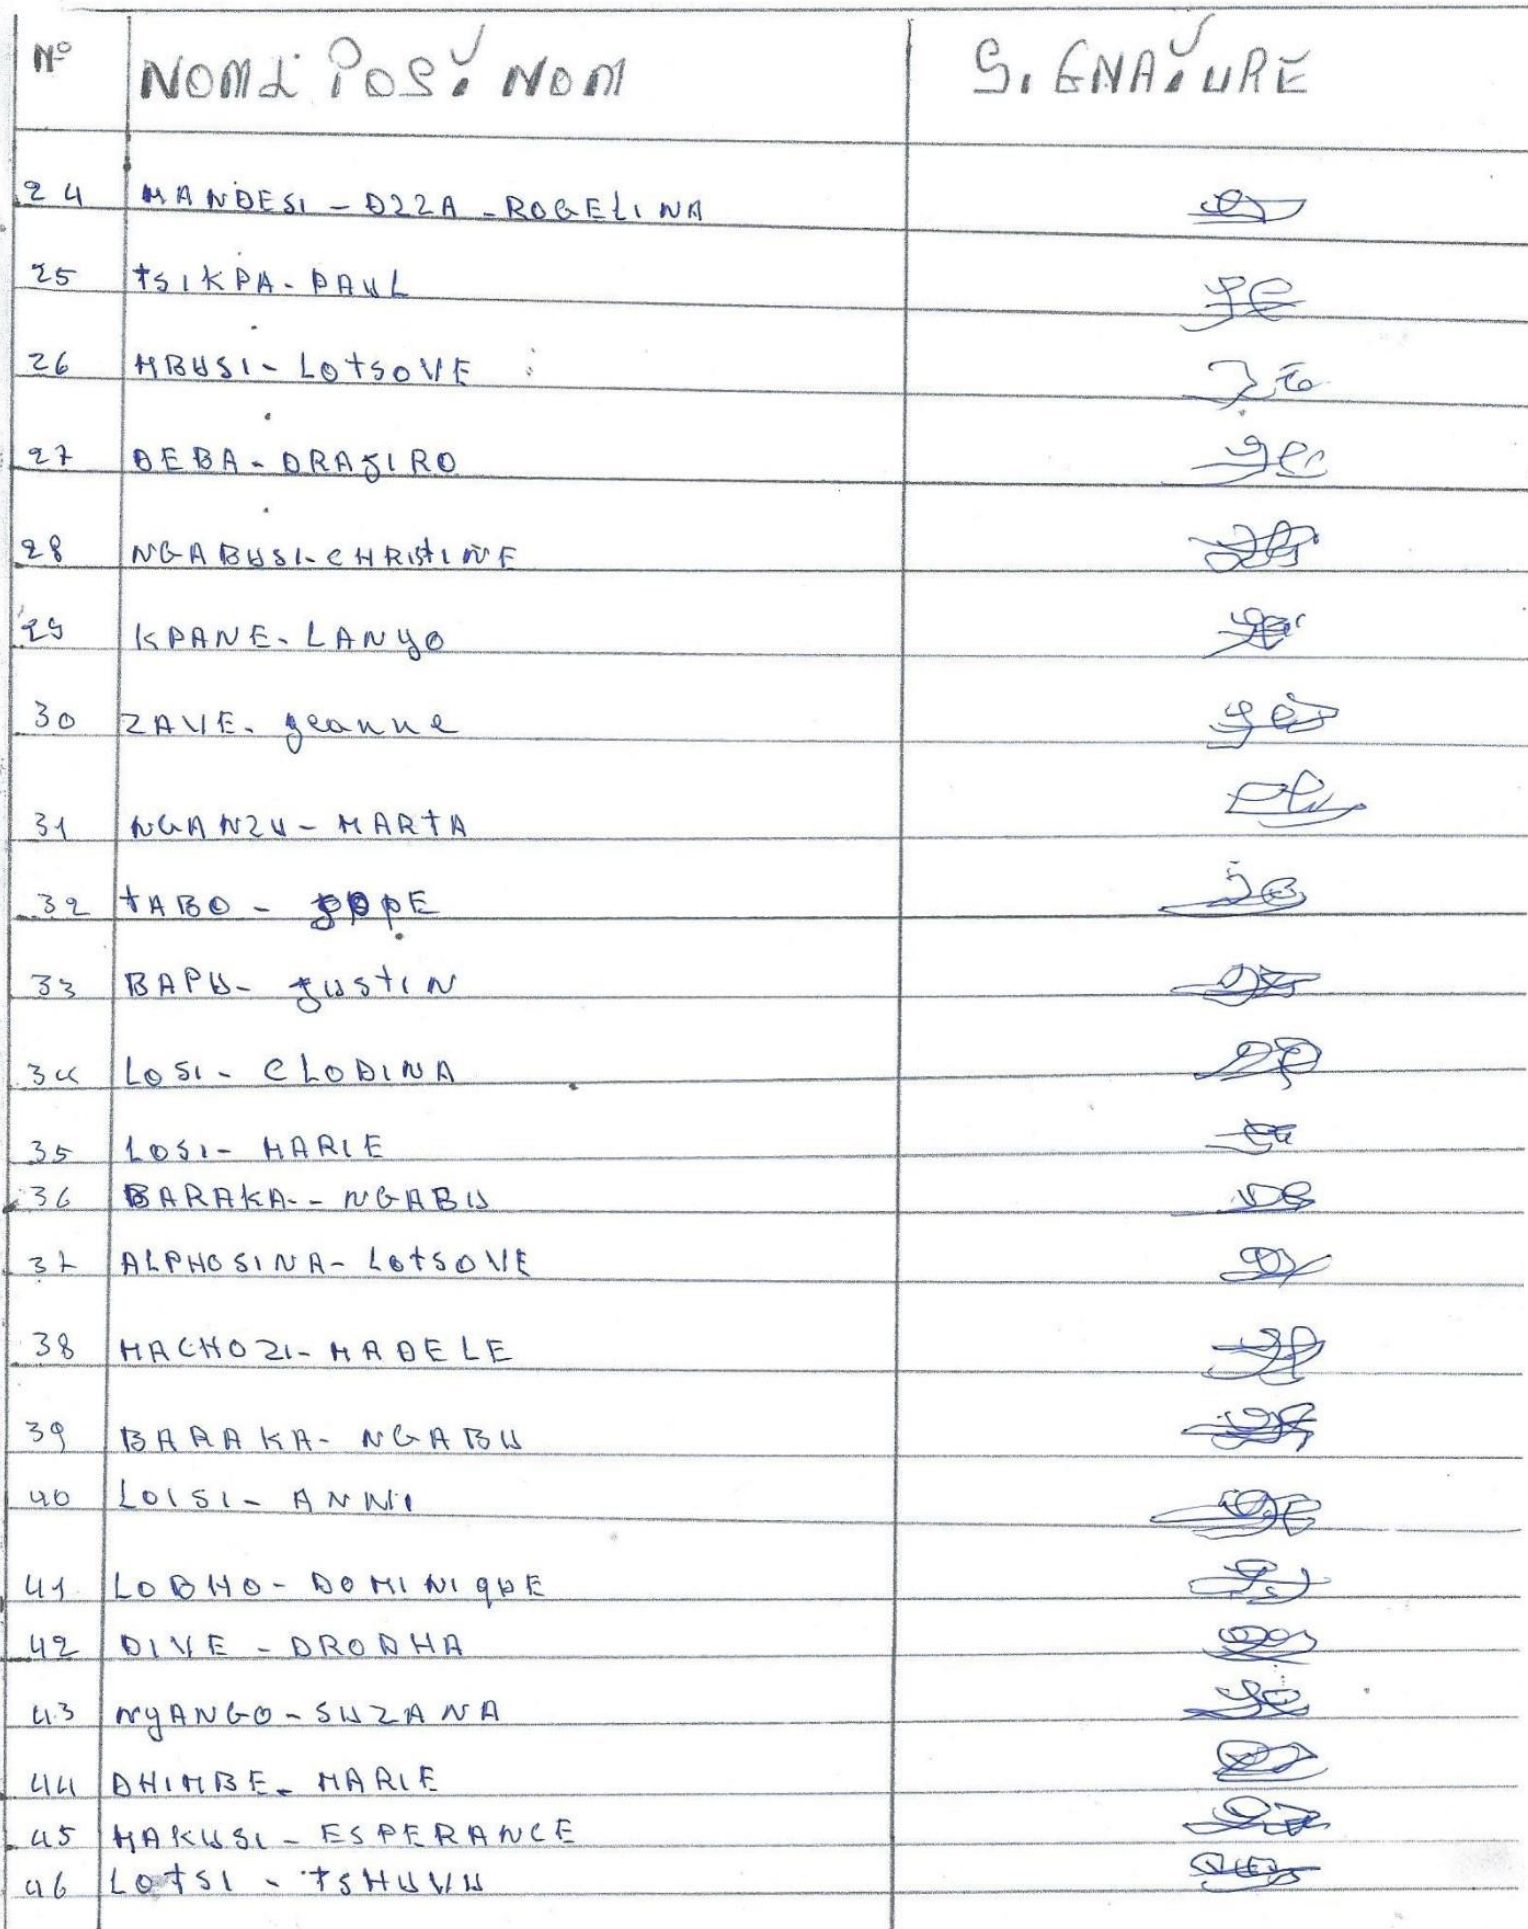 N° NOM & POST NOM SIGNATURE
24 MANDESI - DZZA - ROGELINA
25 TSIKPA - PAUL
26 MBUSI - LOTSOVE
27 DEBA - DRAJIRO
28 NGABUSI - CHRISTINE
29 KPANE - LANYO
30 ZAVE - jeanne
31 NGANZU - MARTA
32 TABO -
33 BAPU - JUSTIN
34 LOSI - CLODINA
35 LOSI - MARIE
36 BARAKA - - NGABU
37 ALPHOSINA - LOTSOVE
38 MACHOZI - MADELE
39 BARAKA - NGABU
40 LOISI - ANNI
41 LOBHO - DOMINIQUE
42 DIVE - DRODHA
43 NYANGO - SUZANA
44 DHIMBE - MARIE
45 MAKUSI - ESPERANCE
46 LOTSI - TSHUVU